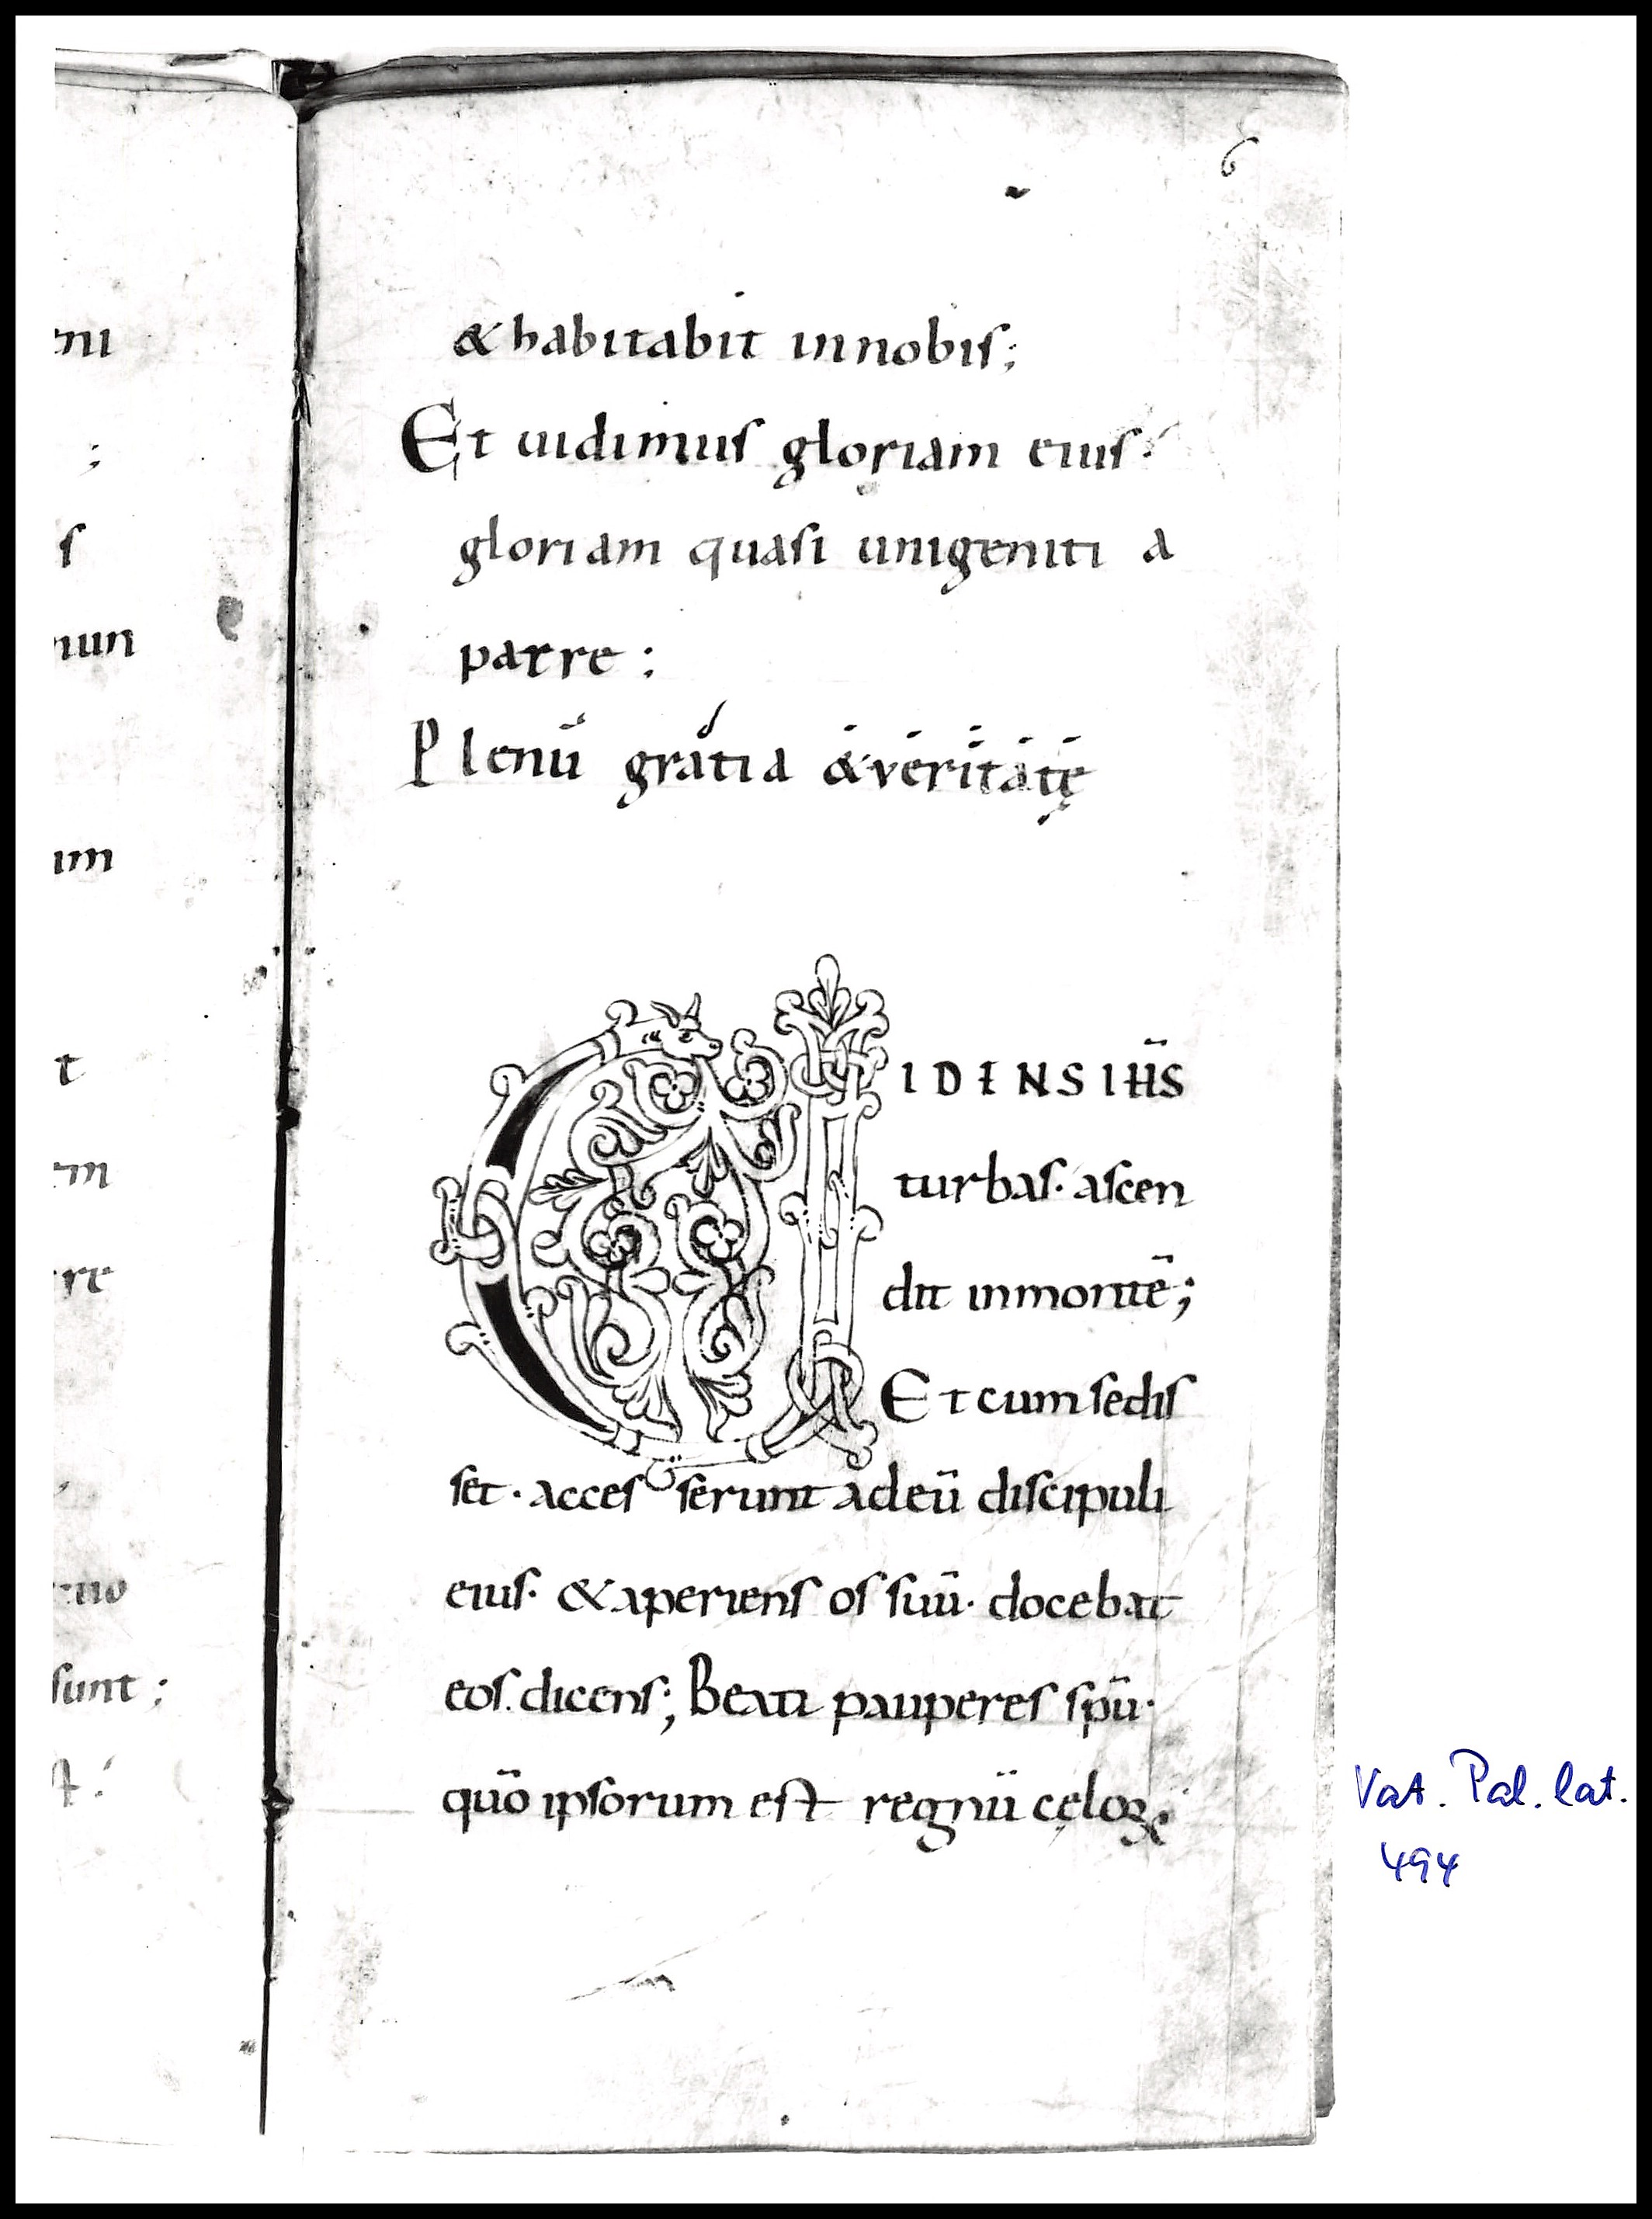 eni
;
s
nun
um
t
em
re
uo
sunt;
st:
6
& habitabit innobis;
Et uidimus gloriam eius:
gloriam quasi unigeniti a
patre:
Plenū gratia & veritatę
UIDENS IH̄S
turbas· ascen
dit inmontē;
Et cum sedis
set· accesserunt adeū discipuli
eius· & aperiens os suū· docebat
eos. dicens; Beati pauperes sp̄u·
quō ipsorum est regnū cęloꝝ.
Vat. Pal. lat.
494